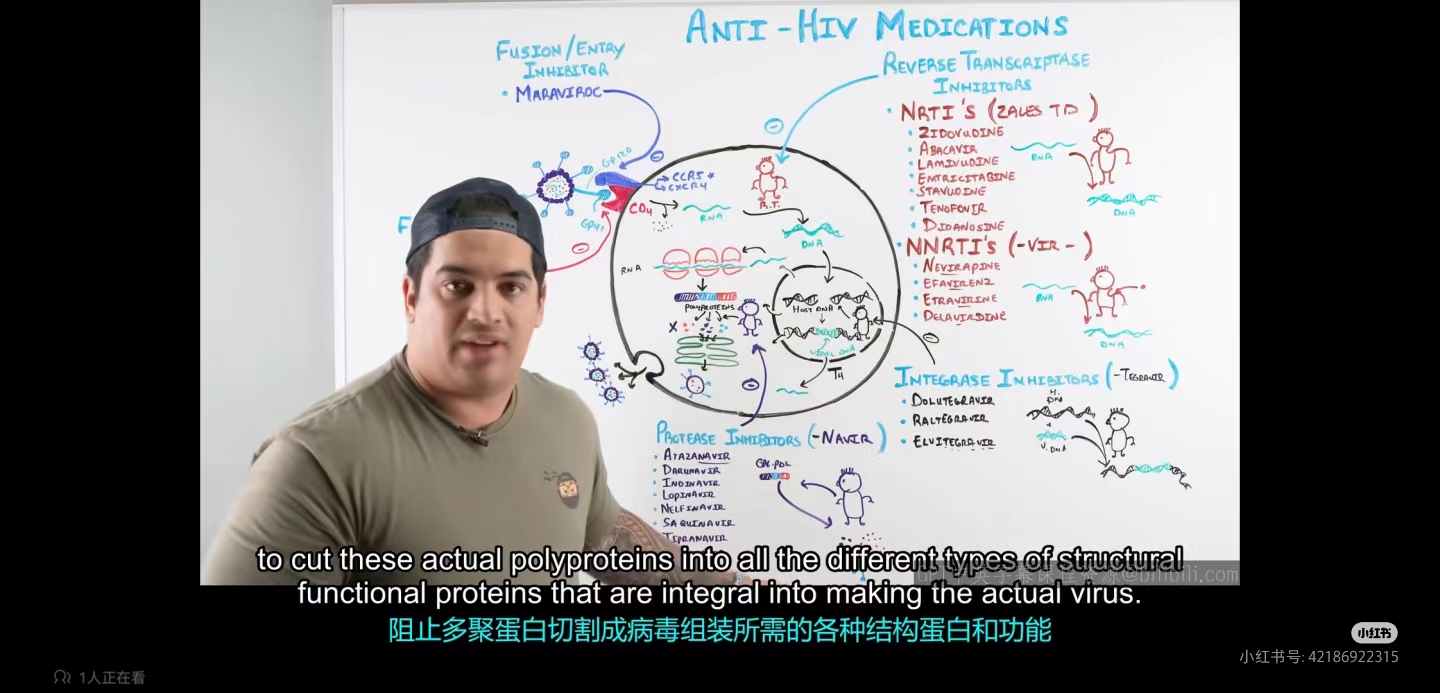 ANTI-HIV MEDICATIONS
FUSION/ENTRY
INHIBITOR
• MARAVIROC
GP120
CCR5 *
CXCR4
CD4
GP41
F
RNA
R.T.
DNA
RNA
POLYPROTEINS
X
HOST DNA
VIRAL DNA
TH
REVERSE TRANSCRIPTASE
INHIBITORS
• NRTI'S (ZALES TD)
• ZIDOVUDINE
• ABACAVIR
• LAMIVUDINE
• EMTRICITABINE
• STAVUDINE
• TENOFOVIR
• DIDANOSINE
RNA
DNA
• NNRTI'S (-VIR-)
• NEVIRAPINE
• EFAVIRENZ
• ETRAVIRINE
• DELAVIRDINE
RNA
DNA
INTEGRASE INHIBITORS (-TEGRAVIR)
• DOLUTEGRAVIR
• RALTEGRAVIR
• ELVITEGRAVIR
H. DNA
+
V. DNA
PROTEASE INHIBITORS (-NAVIR)
• ATAZANAVIR
• DARUNAVIR
• INDINAVIR
• LOPINAVIR
• NELFINAVIR
• SAQUINAVIR
• TIPRANAVIR
GAG-POL
to cut these actual polyproteins into all the different types of structural
functional proteins that are integral into making the actual virus.
阻止多聚蛋白切割成病毒组装所需的各种结构蛋白和功能
@bilibili.com
小红书
小红书号: 42186922315
1人正在看